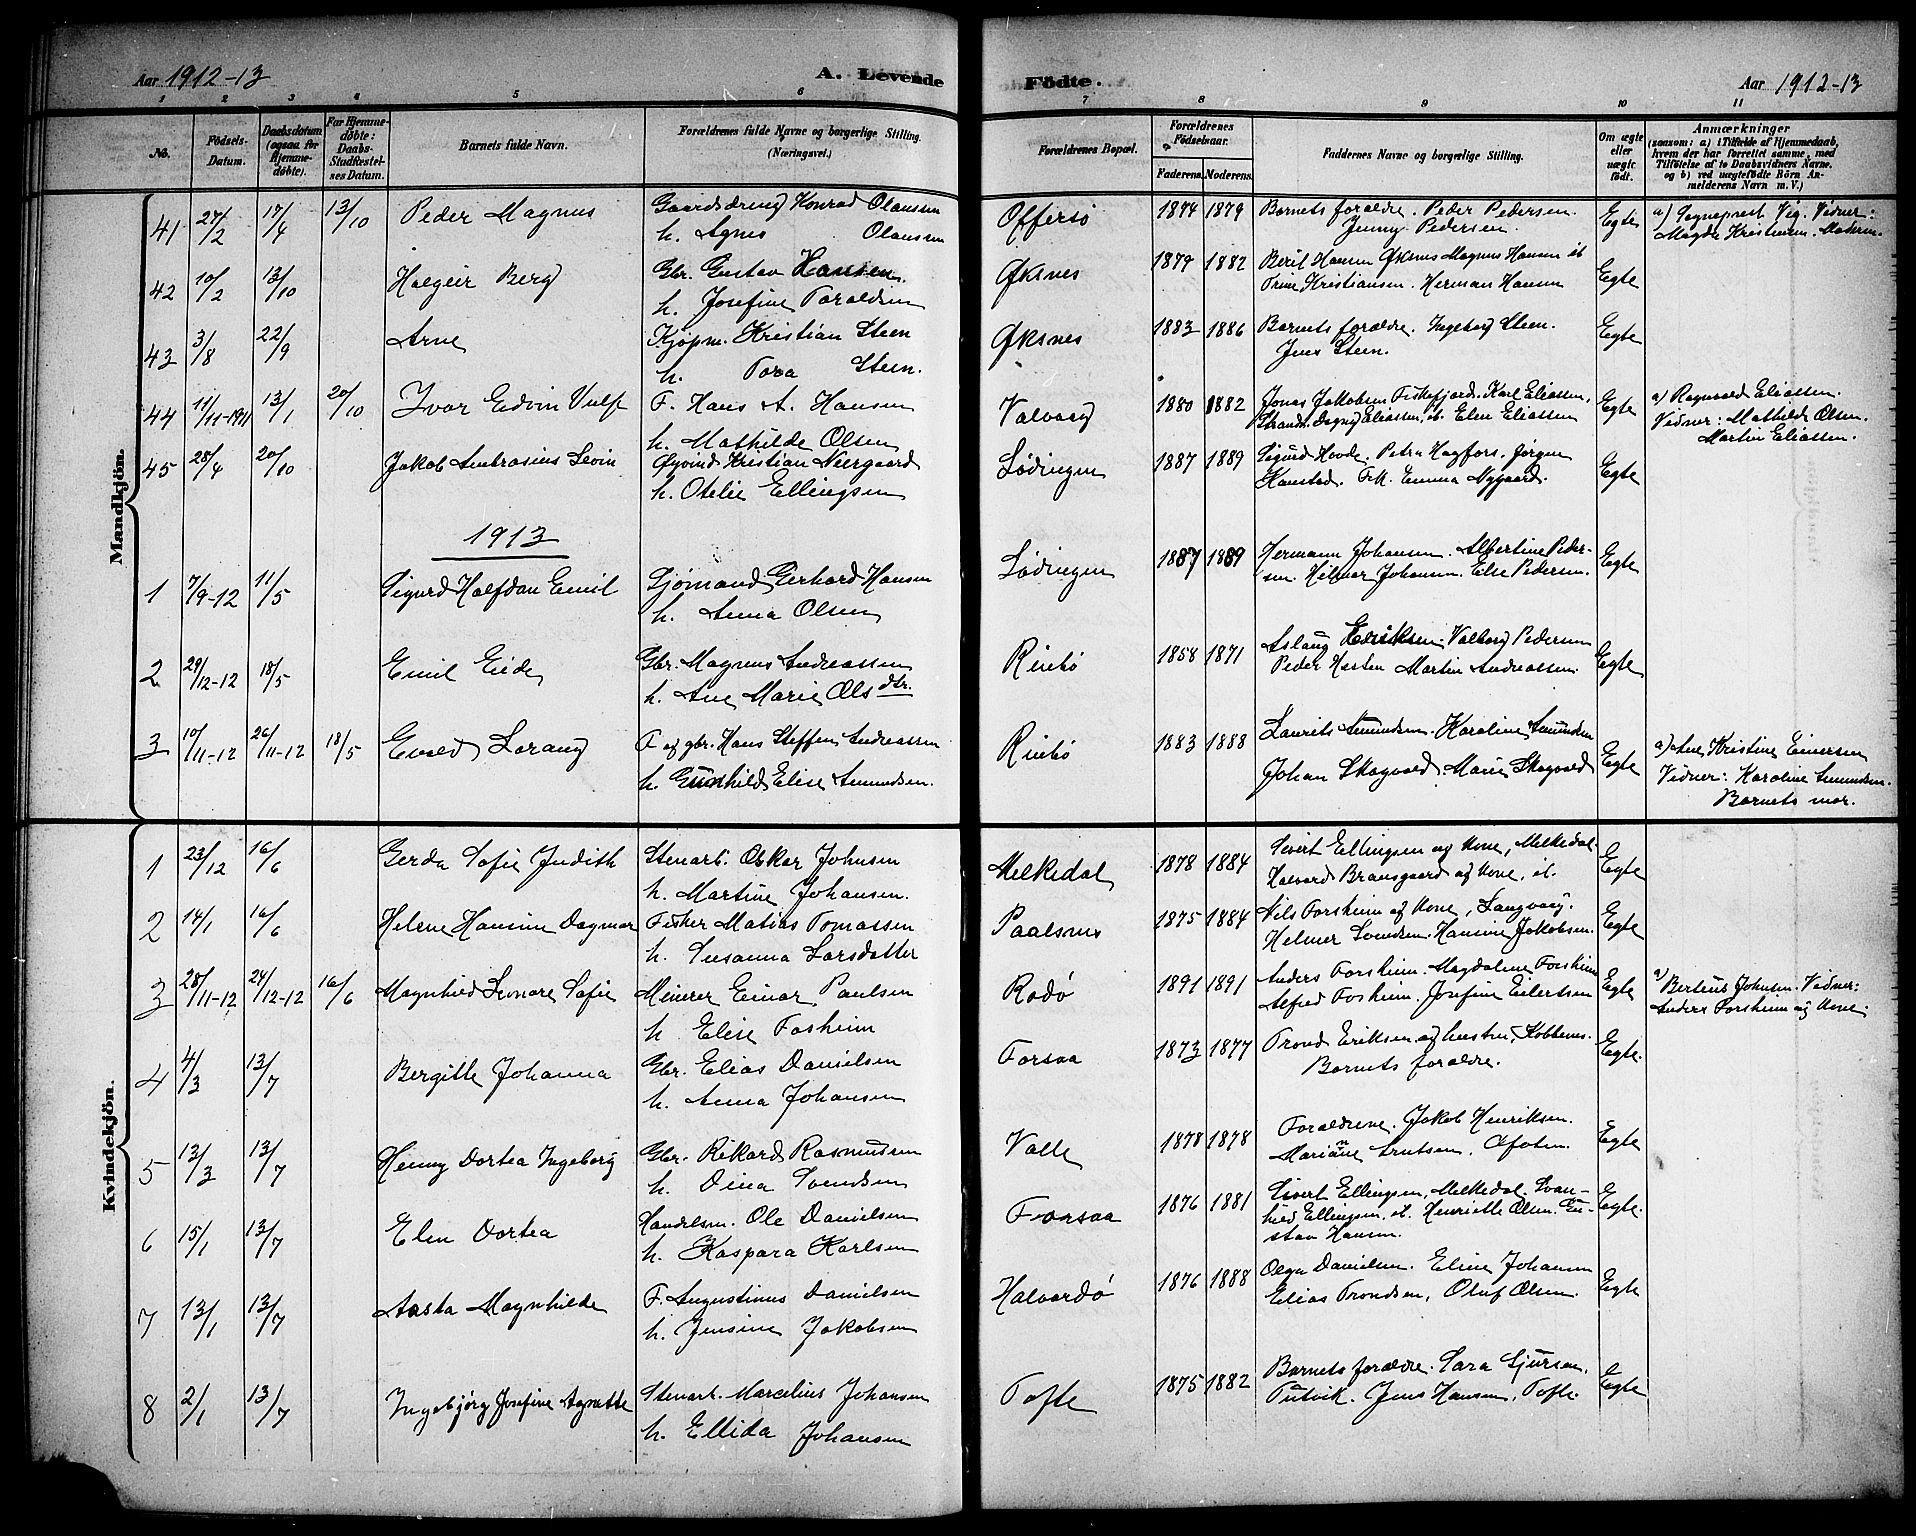 Aar 1912-13 A. Levende Födte. Aar 1912-13
1 2 3 4 5 6 7 8 9 10 11
No. Födsels-Datum. Daabsdatum (ogsaa for Hjemmedöbte). For Hjemmedöbte: Daabs-Stadfæstelses Datum. Barnets fulde Navn. Forældrenes fulde Navne og borgerlige Stilling. (Næringsvei.) Forældrenes Bopæl. Forældrenes Födselsaar. Faderens. Moderens. Faddernes Navne og borgerlige Stilling. Om ægte eller uægte födt. Anmærkninger (saasom: a) i Tilfælde af Hjemmedaab, hvem der har forrettet samme, med Tilföielse af to Daabsvidners Navne, og b) ved uægtefödte Börn Anmelderens Navn m. V.)
Mandkjön.
41 27/2 17/4 13/10 Peder Magnus Gaardsdreng Konrad Olaussen Offersø 1874 1879 Barnets forældre. Peder Pedersen. Egte a) Sogneprest Vig. Vidner:
h. Agnes Olaussen Jenny Pedersen. Magda Kristensen. Moderen.
42 10/2 13/10 Holgeir Berg Gbr. Gustav Hansen. Øksnes 1879 1882 Beril Hansen Øksnes Magnus Hansen ib Egte
h. Josefine Toraldsen Trine Kristiansen. Herman Hansen
43 3/8 22/9 Arne Kjøpm. Kristian Steen Øksnes 1883 1886 Barnets forældre. Ingeborg Steen. Egte
h. Tora Steen. Jens Steen.
44 11/11-1911 13/1 20/10 Ivar Edvin Vulf F. Hans A. Hansen Valvaag 1880 1882 Jonas Jakobsen Fiskefjord. Karl Eliassen, Egte a) Ragnvald Eliassen.
h. Mathilde Olsen Strand. Dagny Eliassen, ib. Elen Eliassen Vidner: Mathilde Olsen.
Martin Eliassen.
45 28/4 20/10 Jakob Ambrosius Levin Øyvind Kristian Neergaard Lødingen 1887 1889 Sigurd Hovde. Petra Hagfors. Jørgen Egte
h. Otelie Ellingsen Hanstad. Frk. Emma Nygaard.
1913
1 7/9-12 11/5 Sigurd Halfdan Emil Sjømand Gerhard Hansen Lødingen 1887 1889 Hermann Johansen. Albertine Peder- Egte
h. Anna Olsen sen. Hilmar Johansen. Else Pedersen.
2 29/12-12 18/5 Emil Eide Gbr. Magnus Andreassen Rinbø 1858 1871 Aslaug Eriksen. Valborg Pedersen Egte
h. Ane Marie Olsdtr. Peder Hesten Martin Andreassen.
3 10/11-12 26/11-12 18/5 Evald Lorang F. og gbr. Hans Steffen Andreassen Rinbø 1883 1888 Laurits Amundsen. Karoline Amundsen Egte a) Ane Kristine Einersen
h. Gunhild Elise Amundsen. Johan Skogvold. Marie Skogvold Vidner: Karoline Amundsen.
Barnets mor.
Kvindekjön.
1 23/12 16/6 Gerda Sofie Judith Stenarb. Oskar Johnsen Melkedal 1878 1884 Sivert Ellingsen og kone, Melkedal. Egte
h. Martine Johansen. Halvard Bransgaard og kone, ib.
2 14/1 16/6 Helene Hansine Dagmar Fisker Matias Tomassen Paalsnes 1875 1884 Nils Forsheim og kone, Langvaag. Egte
h. Susanna Larsdatter Helmer Svendsen. Hansine Jakobsen.
3 28/11-12 24/12-12 16/6 Magnhild Leonore Sofie Minerer Einar Paulsen Rødø 1891 1891 Anders Forsheim. Magdalene Forsheim Egte a) Berteus Johnsen. Vidner:
h. Elise Fosheim Alfred Fosheim. Josefine Eilertsen Anders Forsheim og kone.
4 4/3 13/7 Bergitte Johanna Gbr. Elias Danielsen Forsaa 1873 1877 Trond Eriksen og hustru, Kobbenes. Egte.
h. Anna Johansen Barnets forældre.
5 13/3 13/7 Henny Dortea Ingeborg Gbr. Rikard Rasmussen Valle 1878 1878 Forældrene. Jakob Henriksen. Egte
h. Dina Svendsen Marianne Arntsen. Ofoten.
6 15/1 13/7 Elen Dortea Handelsm. Ole Danielsen Forsaa 1876 1881 Sivert Ellingsen, Melkedal. Svan- Egte.
h. Kaspara Karlsen hild Ellingsen, ib. Henriette Olsen. Gu-
stav Hansen.
7 13/1 13/7 Aasta Magnhilde F. Augustinus Danielsen Halvardø 1876 1888 Olga Danielsen. Eline Johansen Egte
h. Jensine Jakobsen Elias Trondsen, Oluf Olsen.
8 2/1 13/7 Ingebjørg Josefine Agnette Stenarb. Marcelius Johansen Tofte 1875 1882 Barnets forældre. Sara Sjursen, Egte
h. Ellida Johansen Tutvik. Jens Hansen, Tofte.